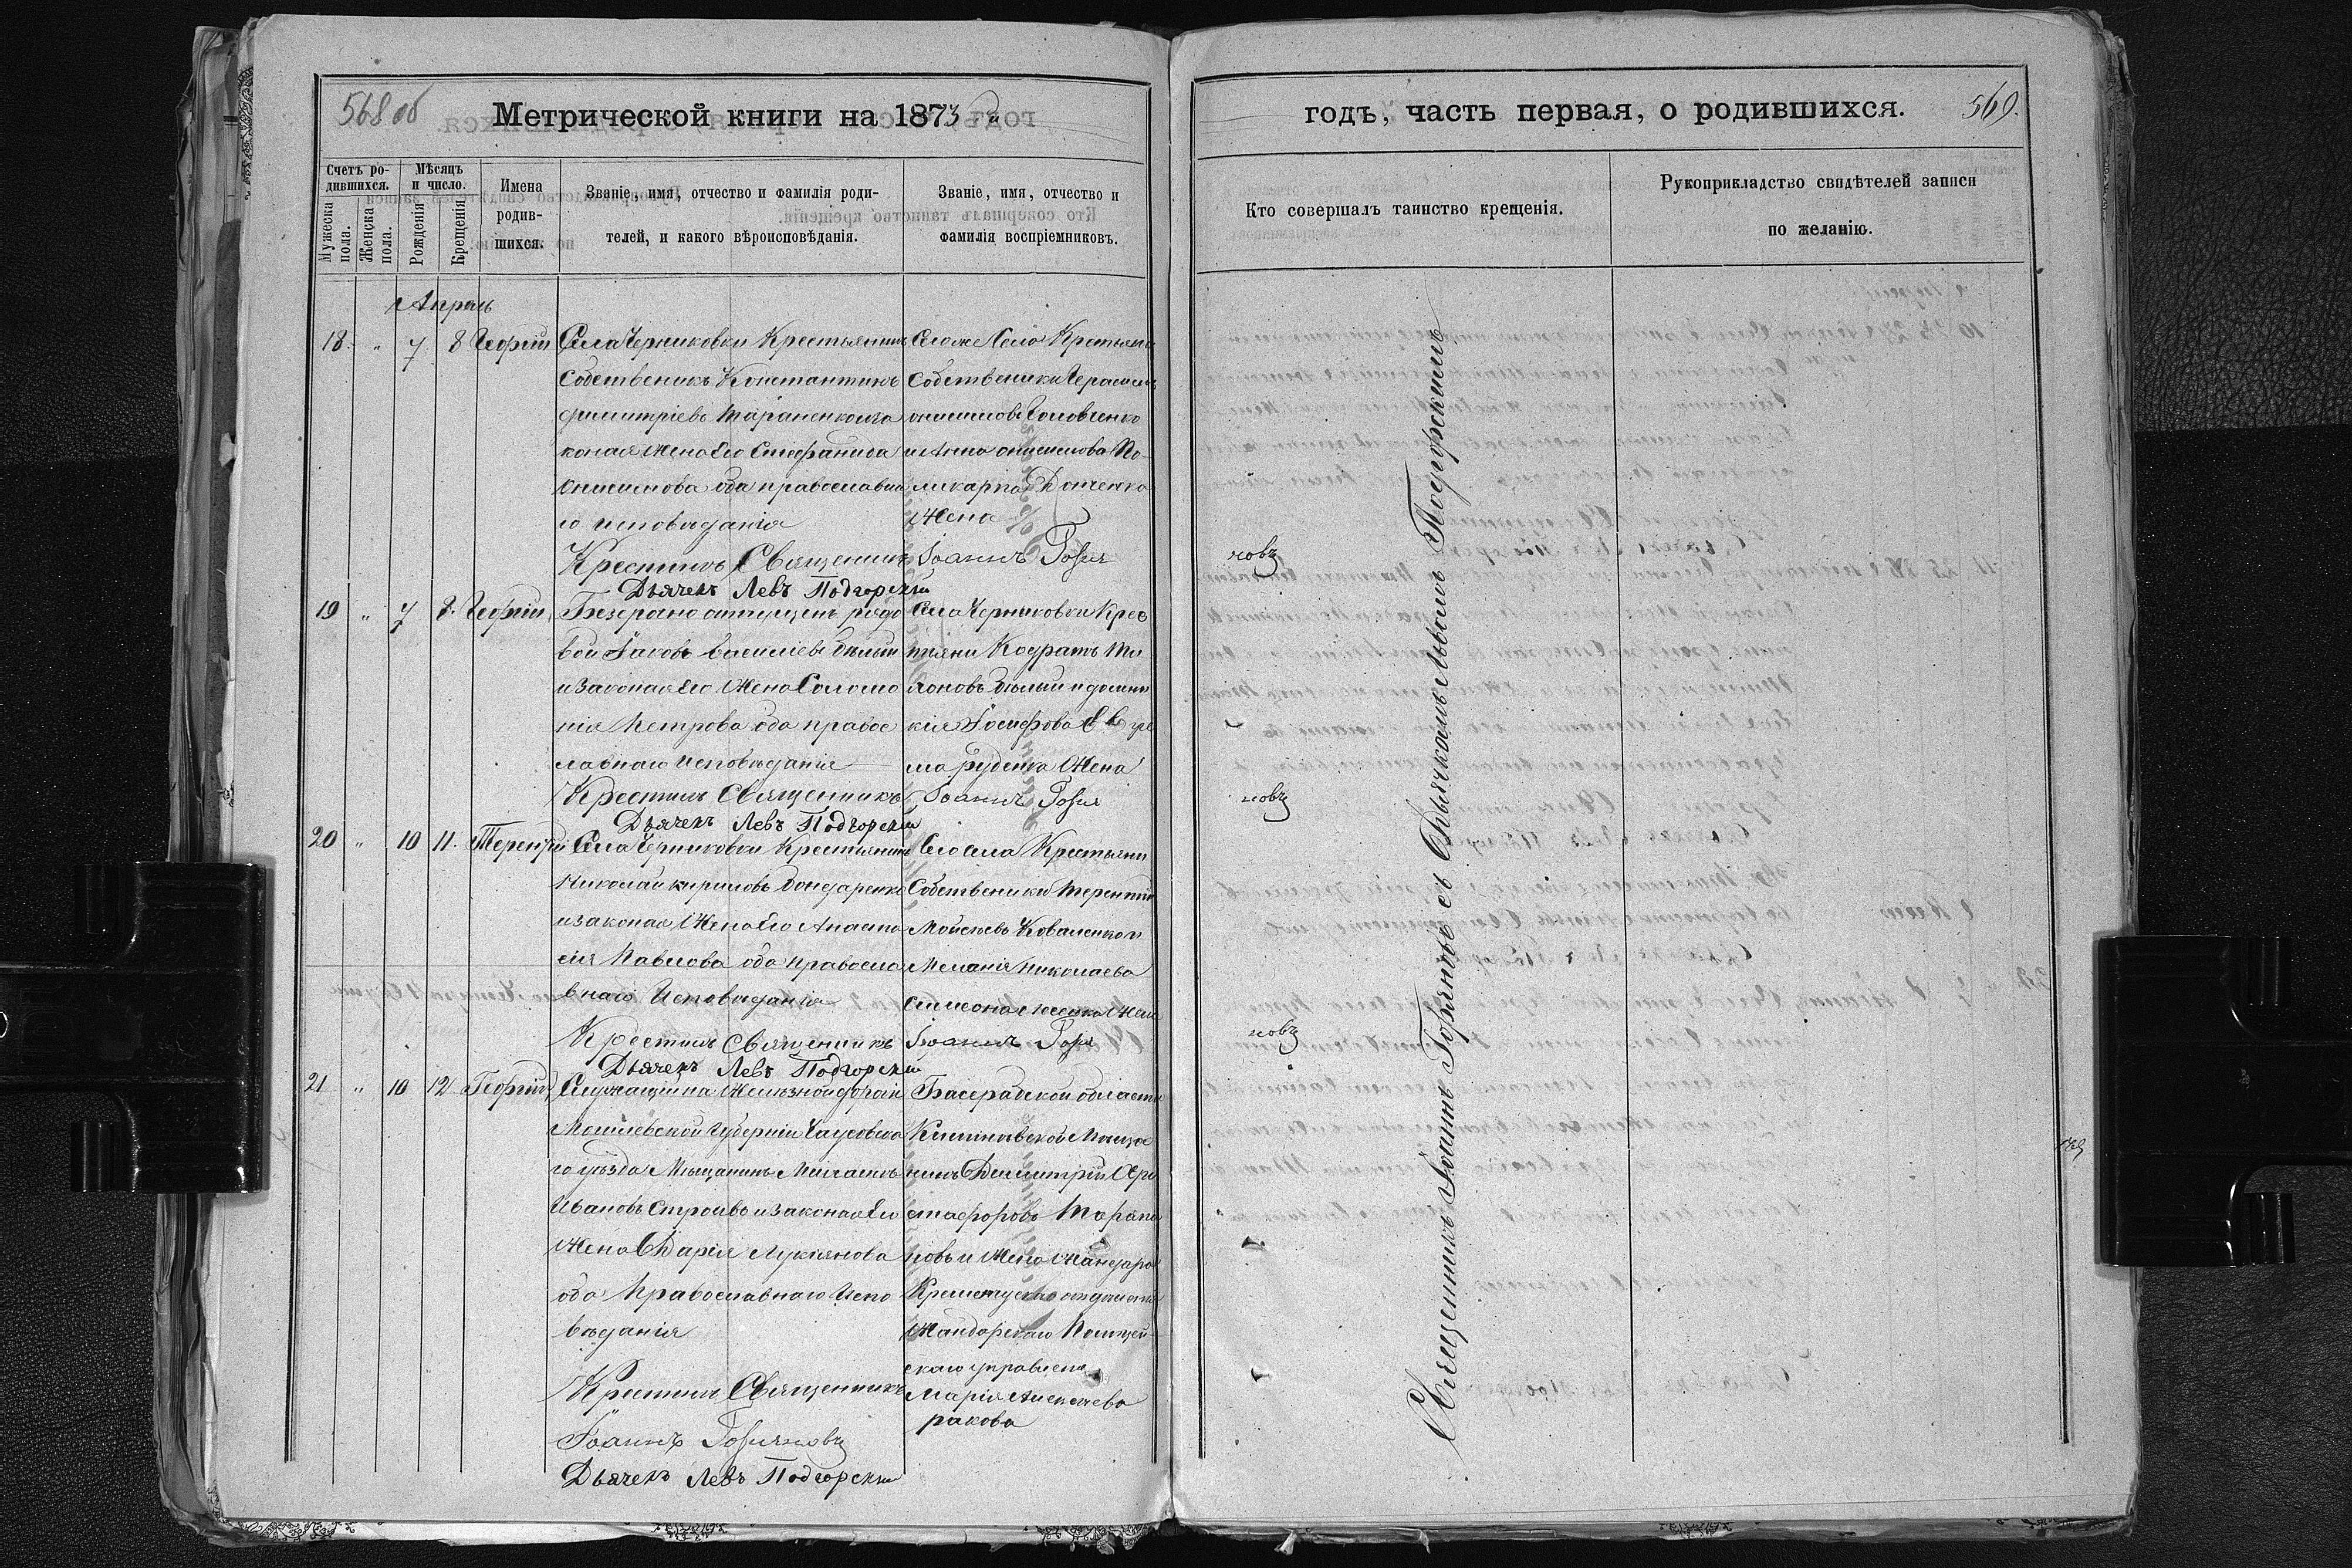 568 об
Метрической книги на 1873й
Счетъ ро-
дившихся.
Мужеска
пола.
Женска
пола.
Мѣсяцъ
и число.
Рожденія
Крещенія
Имена
родив-
шихся.
Званіе, имя, отчество и фамилія роди-
телей, и какого вѣроисповѣданія.
Званіе, имя, отчество и
фамилія воспріемниковъ.
Апрель
18. " 7 8 Георгій
Села Черниковки Крестьянинъ
Собственикъ Константинъ
Димитріевъ Тараненко иза
коная жена Его Стефанида
Онисимова оба православна
го исповеданія
Крестилъ Священникъ Іоаннъ Горя
Дьячекъ Левъ Подгорскій
Собственики Герасимъ
Онисимовъ Головченко
и Анна Онисимова По-
ликарпа
Жена
19 " 7 8. Георгій
отпущенъ рядо
вой Іаковъ Василіевъ Билий
и Законая Его Жена Соломо
нія Петрова оба правос
лавнаго исповеданія
Крестилъ Священникъ Іоаннъ Горя
Дьячекъ Левъ Подгорскій
Села Черниковки Крес
тьяни Кодратъ
Билий и
кія Іосифова
ма Руденка Жена
20 " 10 11. Терентій
Села Черниковки Крестьянинъ
Николай Кириловъ Бондаренко
и законая Жена Его Анаста
сія Павлова оба правосла
внаго Исповеданія
Крестилъ Священникъ Іоаннъ Горя
Дьячекъ Левъ Подгорскій
Его села Крестьяни
Собственики Терентій
Мойсеевъ Коваленко и
Меланія Николаева
Симеона Жена
21 " 10 12 Георгій
Служащій на Железной дороги
Могилевской Губерніи Чаусовска
го уѣзда Мѣщанинъ Михаилъ
Ивановъ и Законая Его
Жена Дарія Лукіянова
оба Православнаго Испо
веданія
Крестил Священникъ
Іоаннъ Горяновъ
Дьячекъ Левъ Подгорскій
Басерабской области
нинъ Димитрій
новъ и Жена Жандара
Жандарскаго Полицей-
скаго управленія
Марія
ракова
годъ, часть первая, о родившихся.
569.
Кто совершалъ таинство крещенія.
Рукоприкладство свидѣтелей записи
по желанію.
новъ
новъ
новъ
Священникъ Іоаннъ Горяновъ съ Дьячкомъ Львомъ Подгорскимъ